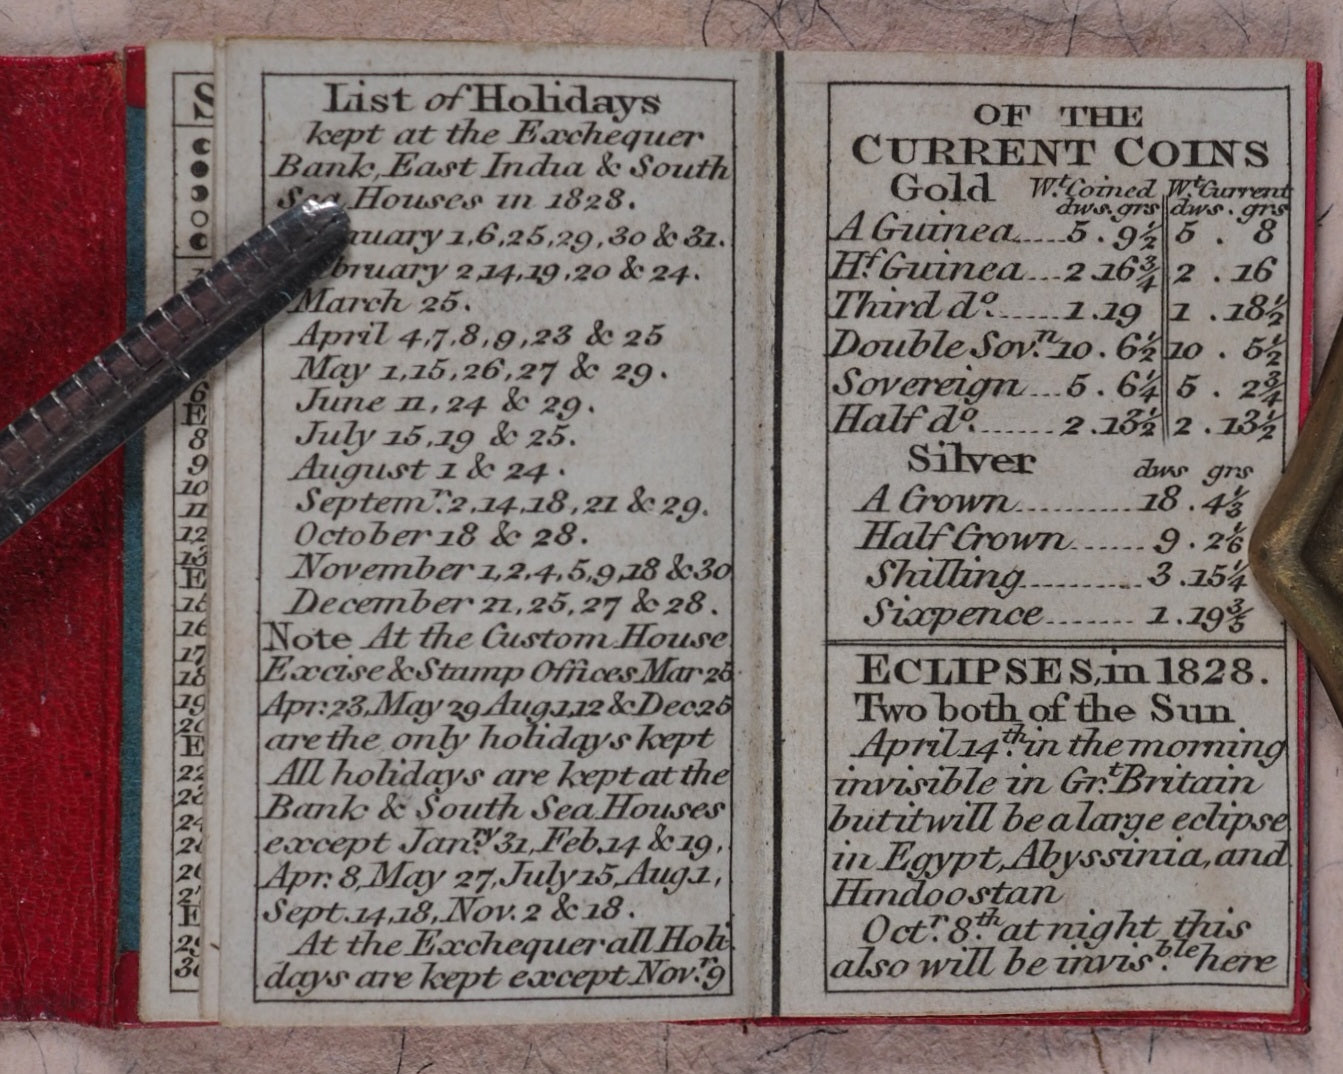 S
6
E
8
9
10
11
12
13
E
16
17
18
19
E
22
24
E
List of Holidays
kept at the Exchequer
Bank, East India & South
Sea Houses in 1828.
nuary 1,6,25,29,30 & 31.
bruary 2,14,19,20 & 24.
March 25.
April 4,7,8,9,23 & 25
May 1,15,26,27 & 29.
June 11,24 & 29.
July 15,19 & 25.
August 1 & 24.
Septemr. 2,14,18,21 & 29.
October 18 & 28.
November 1,2,4,5,9,18 & 30
December 21,25,27 & 28.
Note At the Custom House
Excise & Stamp Offices Mar 25
Apr. 23, May 29 Aug. 1,12 & Dec. 25
are the only holidays kept
All holidays are kept at the
Bank & South Sea Houses
except Janry 31, Feb. 14 & 19,
Apr. 8, May 27, July 15, Aug. 1,
Sept. 14,18, Nov. 2 & 18.
At the Exchequer all Holi
days are kept except Novr. 9
OF THE
CURRENT COINS
Gold Wt. Coined Wt. Current
dws. grs dws. grs
A Guinea.....5 . 9½ 5 . 8
Hf. Guinea...2 . 16¾ 2 . 16
Third do......1 . 19 1 . 18½
Double Sovn. 10 . 6½ 10 . 5½
Sovereign....5 . 6¼ 5 . 2¾
Half do.......2 . 13½ 2 . 13½
Silver dws grs
A Crown..........18 . 4⅓
Half Crown......9 . 2⅙
Shilling..........3 . 15¼
Sixpence........1 . 19⅗
ECLIPSES, in 1828.
Two both of the Sun
April 14th. in the morning
invisible in Grt. Britain
but it will be a large eclipse
in Egypt, Abyssinia, and
Hindoostan
Octr. 8th. at night this
also will be invisble. here